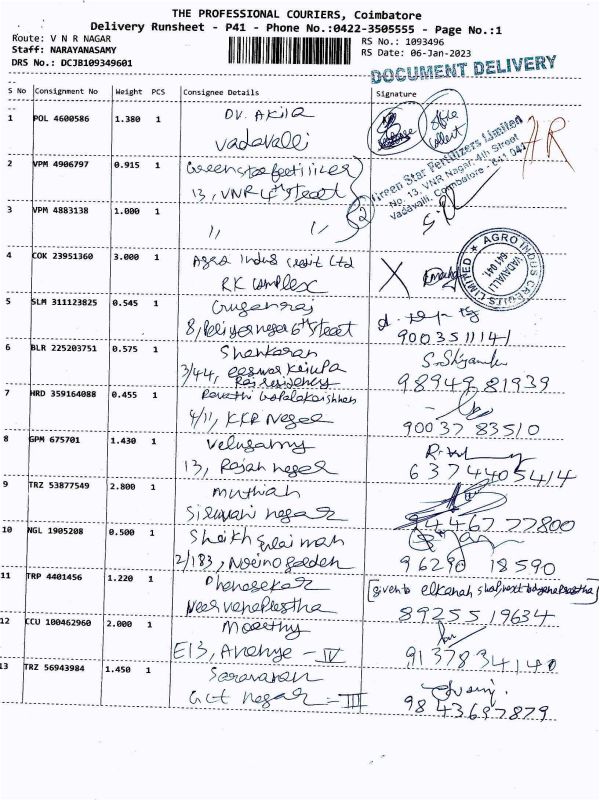 THE PROFESSIONAL COURIERS, Coimbatore
Delivery Runsheet - P41 - Phone No.:0422-3505555 - Page No.:1
Route: V N R NAGAR
RS No.: 1093496
Staff: NARAYANASAMY
RS Date: 06-Jan-2023
DRS No.: DCJB109349601
DOCUMENT DELIVERY
S No Consignment No Weight PCS Consignee Details Signature
1 POL 4600586 1.380 1 Dr. Akila
Vadavalli
HR
2 VPM 4906797 0.915 1 Greenstar fertilizer
13, VNR 4th street
Green Star Fertilizers Limited
No. 13, VNR Nagar, 4th Street
Vadavalli, Coimbatore - 641 041
3 VPM 4883138 1.000 1 ,, ,,
4 COK 23951360 3.000 1 Agro Indus Credit Ltd
RK Complex
X
AGRO INDUS CREDITS LIMITED
VADAVALLI
641 041.
5 SLM 311123825 0.545 1
8, Periyarnagar 6th street
9003511141
6 BLR 225203751 0.575 1 Shankaran
3/44, eeswar kirupa
Raj residency
98948 81939
7 HRD 359164088 0.455 1 Revathi Gopalakrishnan
4/11, KKR Nagar
90037 83510
8 GPM 675701 1.430 1 Velusamy
13, Rajan nagar
6374405414
9 TRZ 53877549 2.800 1 Muthiah
Siruvani nagar
94467 77800
10 NGL 1905208 0.500 1 Sheikh Sulaiman
2/183,
96290 18590
11 TRP 4401456 1.220 1 Dhanasekar
Near vanaprastha
given to elkanah shop, next to
89255 19634
12 CCU 100462960 2.000 1 Moorthy
E13, Avenue - IV
9137834140
13 TRZ 56943984 1.450 1 Saravanan
GCT nagar - III
98436 97879